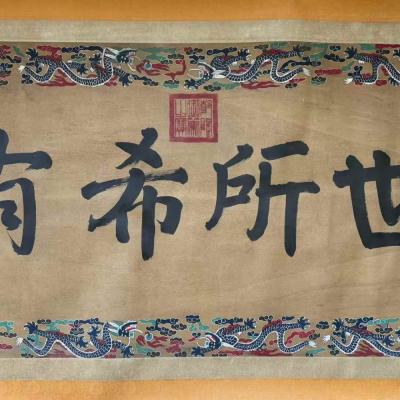 世所希有